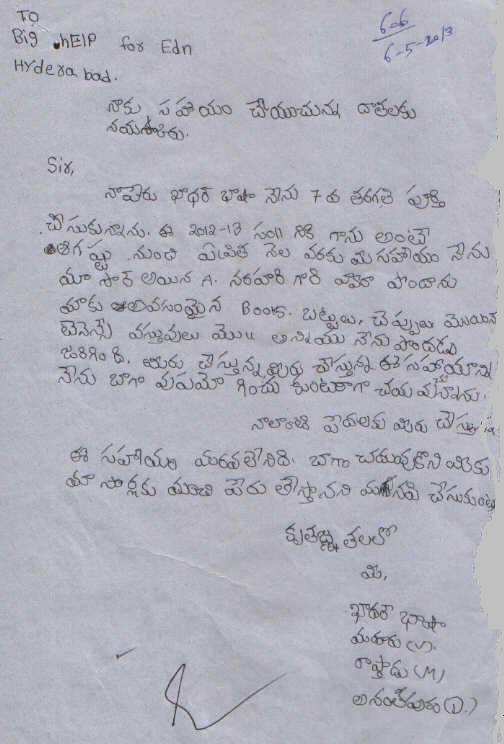 TO
Big hElP for Edn
HYdera bad.
606
6-5-2013
నాకు సహాయం చేయుచున్న దాతలకు
నమస్కారం.
Sir,
నాపేరు ఖాదర్ భాషా నేను 7 వ తరగతి పూర్తి
చేసుకున్నాను. ఈ 2012-13 సం॥ నికి గాను అంటే
ఆగష్టు నుంచి ఏప్రిల్ నెల వరకు మీ సహాయం నేను
మా సార్ అయిన A. నరహరి గారి ద్వారా పొందాను
మాకు అవసరంమైన Books. బట్టలు, చెప్పులు మొయిన్
టెనెన్స్ వస్తువులు మొ॥ అన్నియు నేను పొందడం
జరిగింది. మీరు చేస్తున్న ఈ సహాయాన్ని
నేను బాగా ఉపయోగించు కుంటూ బాగా
నాలాంటి పేదలకు మీరు చేస్తున్న
ఈ సహాయం మరవలేనిది. బాగా చదువుకొని మీకు
మా సార్లకు మంచి పేరు తెస్తానని మనవి చేసుకుంటు
కృతజ్ఞ తలతో
మీ,
ఖాదర్ భాషా
మరూరు (V).
రాప్తాడు (M)
అనంతపురం (D.)